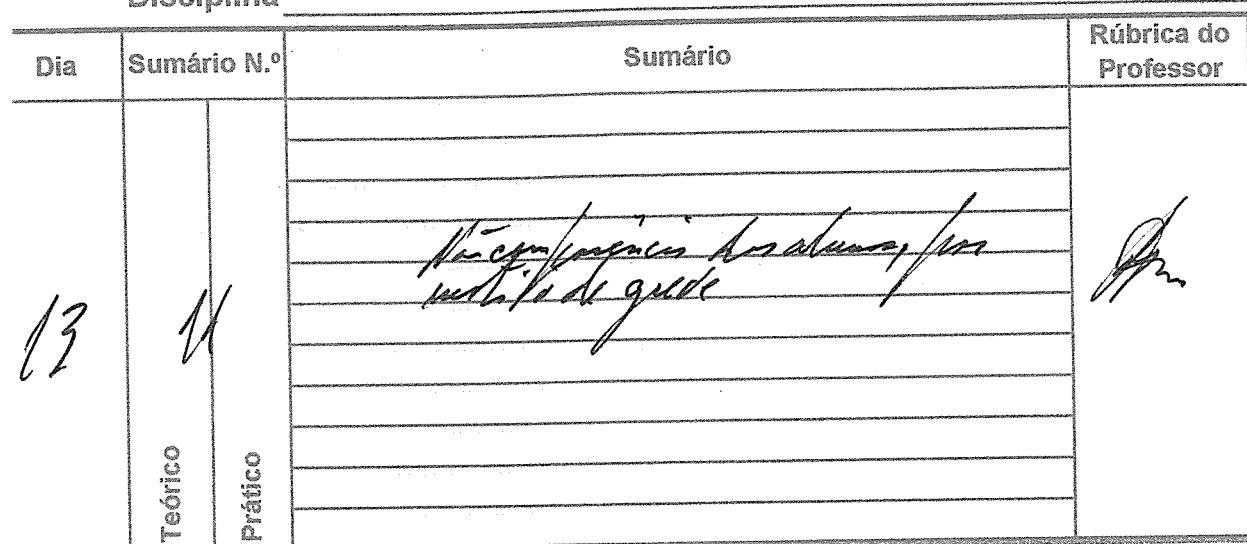 Disciplina
Dia Sumário N.º Sumário Rúbrica do Professor
Não comparência dos alunos, por
motivo de greve
13 11
Teórico Prático